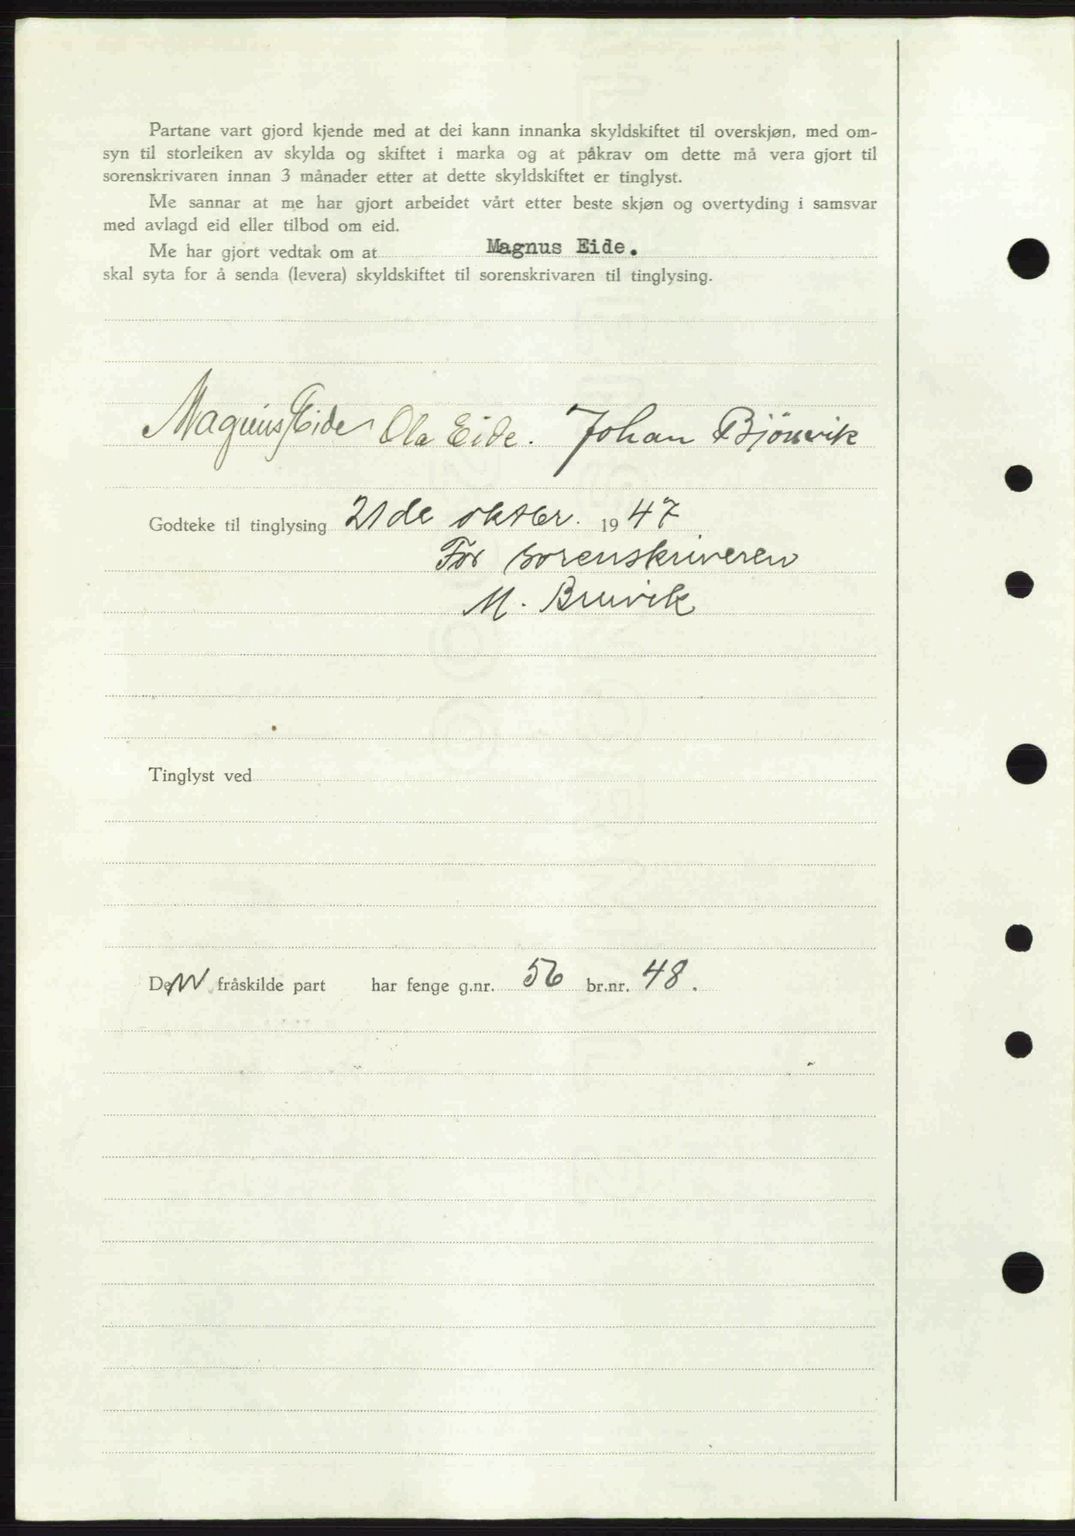 Partane vart gjord kjende med at dei kann innanka skyldskiftet til overskjøn, med om-
syn til storleiken av skylda og skiftet i marka og at påkrav om dette må vera gjort til
sorenskrivaren innan 3 månader etter at dette skyldskiftet er tinglyst.
Me sannar at me har gjort arbeidet vårt etter beste skjøn og overtyding i samsvar
med avlagd eid eller tilbod om eid.
Me har gjort vedtak om at Magnus Eide.
skal syta for å senda (levera) skyldskiftet til sorenskrivaren til tinglysing.
Magnus Eide Ola Eide. Johan Bjönvik
Godteke til tinglysing 21de oktbr. 1947
For sorenskriveren
M. Bruvik
Tinglyst ved
Den fråskilde part har fenge g.nr. 56 br.nr. 48.